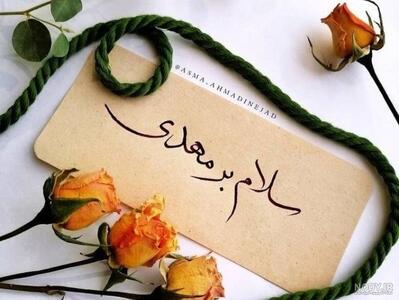 @ASMA_AHMADINEJAD
سلام بر مهدی
NOOY.IR